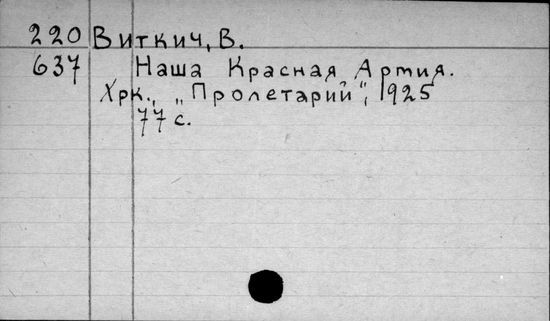 220 Виткич, В.
637 Наша Красная Армия.
Хрк., „Пролетарий“, 1925
77 с.